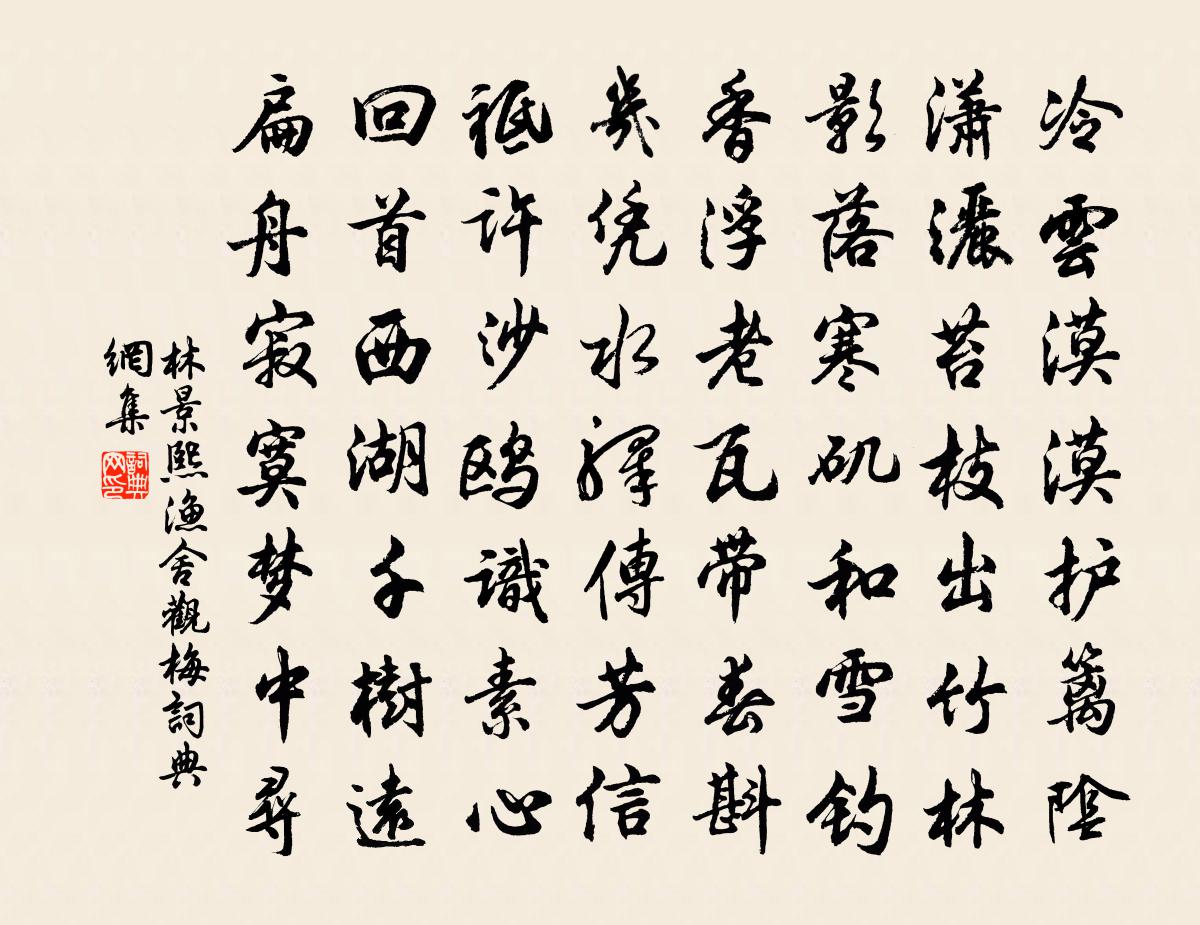 冷雲漠漠护籬陰
瀟灑苔枝出竹林
影落寒矶和雪钓
香浮老瓦带春斟
幾凭水驛傳芳信
祗許沙鸥識素心
回首西湖千樹遠
扁舟寂寞梦中尋
林景熙漁舍觀梅詞典
網集
詞典
网印